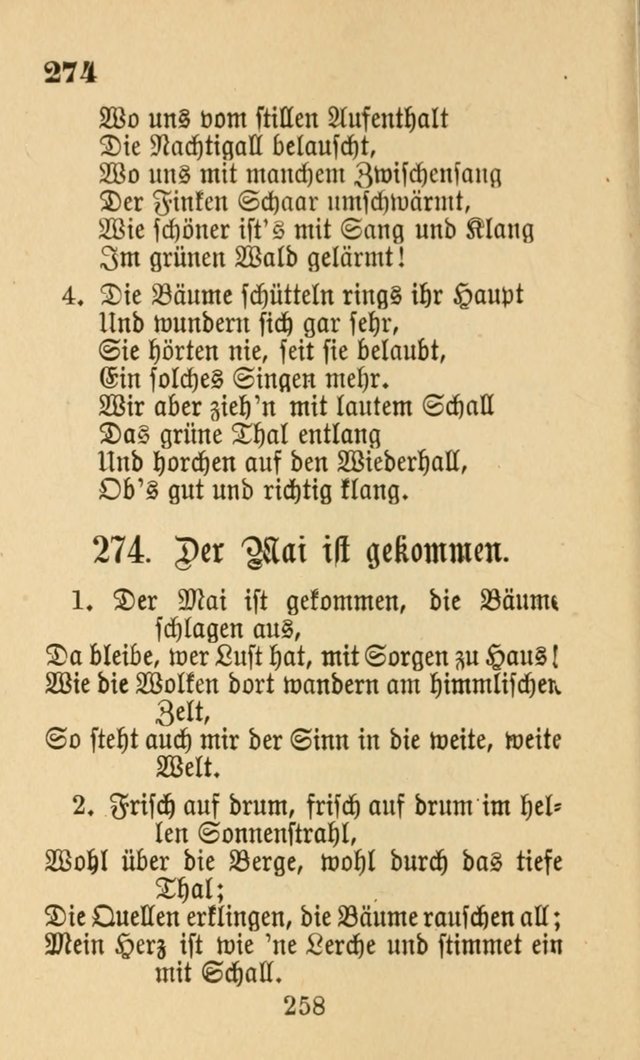 274
Wo uns vom stillen Aufenthalt
Die Nachtigall belauscht,
Wo uns mit manchem Zwischensang
Der Finken Schaar umschwärmt,
Wie schöner ist's mit Sang und Klang
Im grünen Wald gelärmt!
4. Die Bäume schütteln rings ihr Haupt
Und wundern sich gar sehr,
Sie hörten nie, seit sie belaubt,
Ein solches Singen mehr.
Wir aber zieh'n mit lautem Schall
Das grüne Thal entlang
Und horchen auf den Wiederhall,
Ob's gut und richtig klang.
274. Der Mai ist gekommen.
1. Der Mai ist gekommen, die Bäume
schlagen aus,
Da bleibe, wer Lust hat, mit Sorgen zu Haus!
Wie die Wolken dort wandern am himmlischen
Zelt,
So steht auch mir der Sinn in die weite, weite
Welt.
2. Frisch auf drum, frisch auf drum im hel-
len Sonnenstrahl,
Wohl über die Berge, wohl durch das tiefe
Thal;
Die Quellen erklingen, die Bäume rauschen all;
Mein Herz ist wie 'ne Lerche und stimmet ein
mit Schall.
258